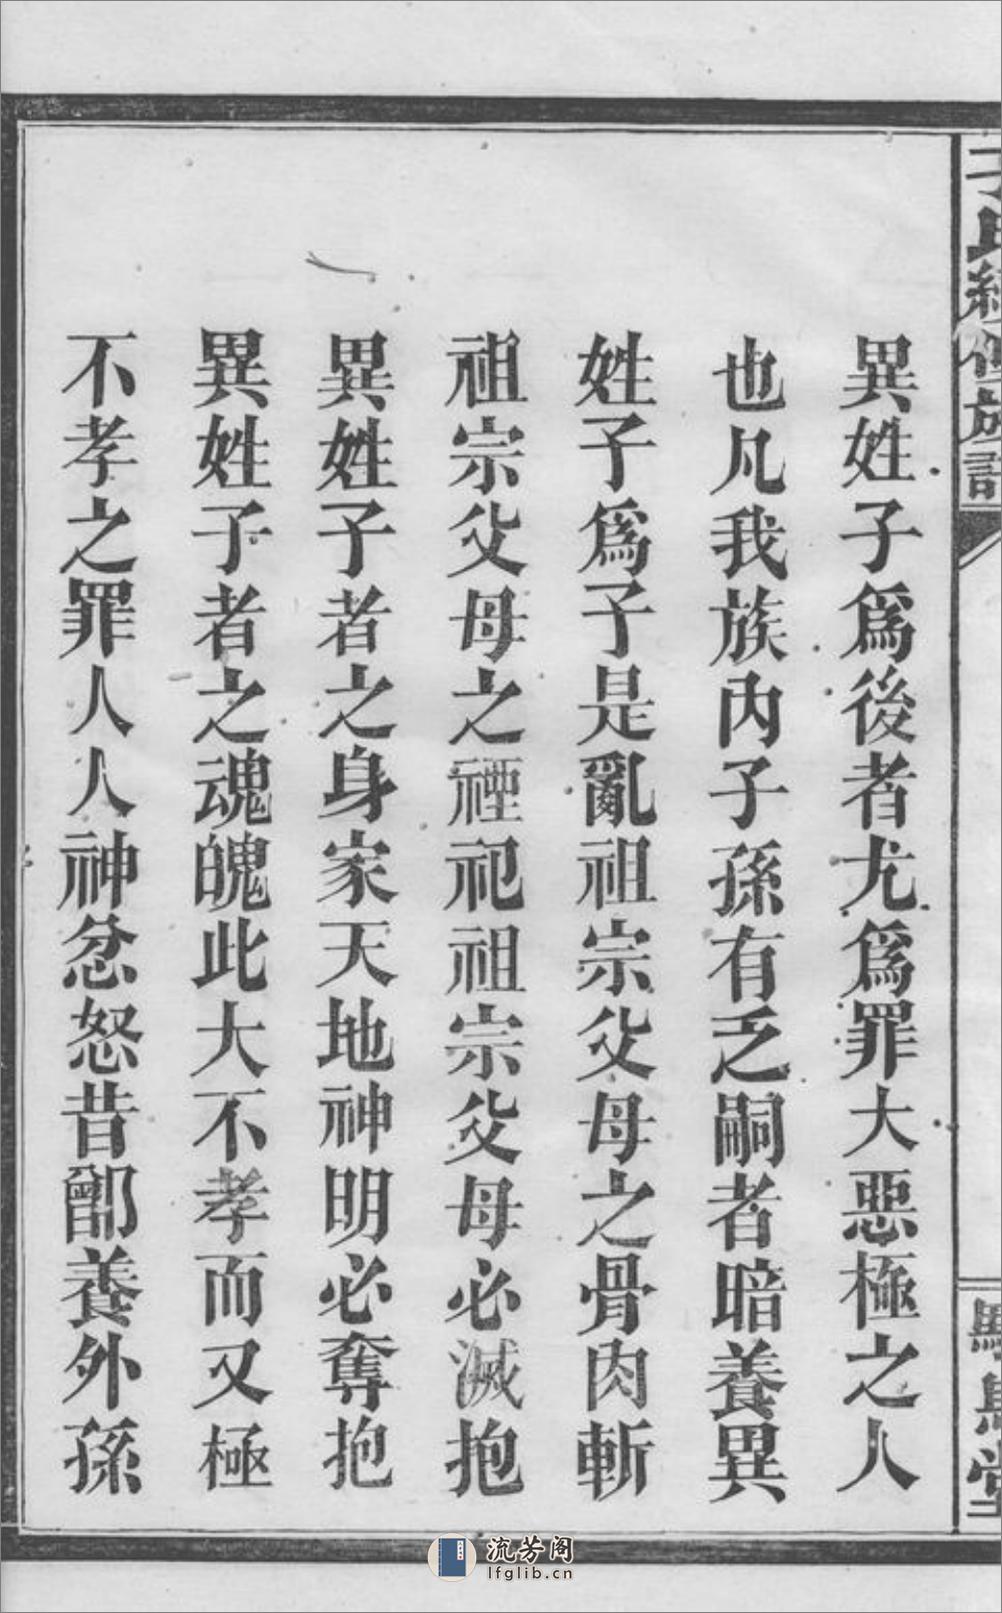 異姓子爲後者尤爲罪大惡極之人
也凡我族內子孫有乏嗣者暗養異
姓子爲子是亂祖宗父母之骨肉斬
祖宗父母之禋祀祖宗父母必滅抱
異姓子者之身家天地神明必奪抱
異姓子者之魂魄此大不孝而又極
不孝之罪人人神忿怒昔鄫養外孫
流芳阁
lfglib.cn